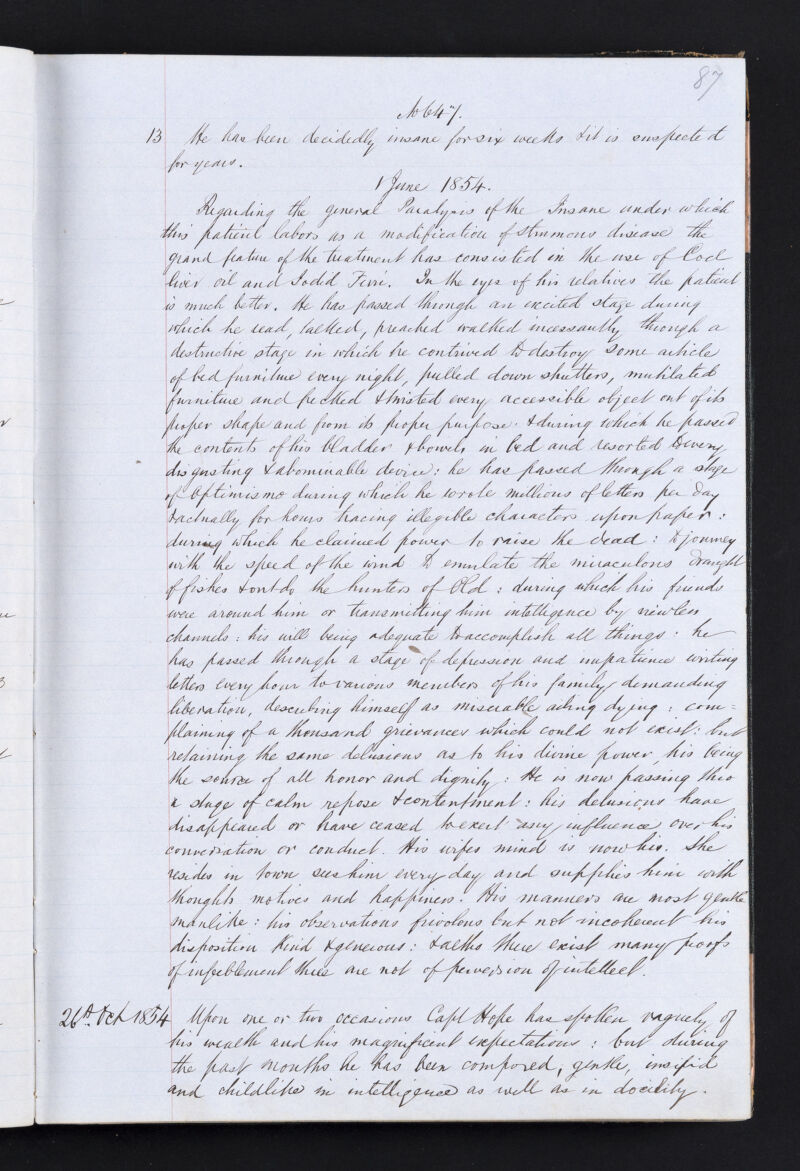 87
No 647.
13 He has been decidedly insane for six weeks & it is suspected
for years.
1 June 1854.
Regarding the general Paralysis of the Insane under which
this patient labors as a modification of Strumous disease the
grand feature of the treatment has consisted in the use of Cod
liver oil and Iodid Ferri. In the eyes of his relatives the patient
is much better. He has passed through an excited stage during
which he read, talked, preached walked incessantly through a
destructive stage in which he contrived to destroy some article
of bed furniture every night, pulled down shutters, mutilated
furniture and pecked & twisted every accessible object out of its
proper shape and from its proper purpose. & during which he passed
the contents of his bladder & bowels in bed and resorted to every
disgusting & abominable device: he has passed through a stage
of Optimismo during which he wrote millions of letters per day
& actually for hours tracing illegible characters upon paper:
during which he claimed power to raise the dead: to journey
with the speed of the wind to emulate the miraculous draught
of fishes & outdo the hunters of Old: during which his friends
were around him or transmitting him intelligence by viewless
channels: his will being adequate to accomplish all things: he
has passed through a stage of depression and impatience writing
letters every hour to various members of his family demanding
liberation, describing himself as miserable ailing dying: com=
plaining of a thousand grievances which could not exist: but
retaining the same delusions as to his divine power, his being
the source of all honor and dignity: He is now passing thro
a stage of calm repose & contentment: his delusions have
disappeared or have ceased to exert any influence over his
conversation or conduct. His wifes mind is now his. She
resides in town sees him every day and supplies him with
thoughts motives and happiness. His manners are most gentle
manlike: his observations frivolous but not incoherent his
disposition kind & generous: & altho there exist many proofs
of infeeblement there are not of perversion of intellect.
26th Oct 1854 Upon one or two occasions Capt Hope has spoken vaguely of
his wealth and his magnificent expectations: but during
the past months he has been composed, gentle, insipid
and childlike in intelligence as well as in docility.